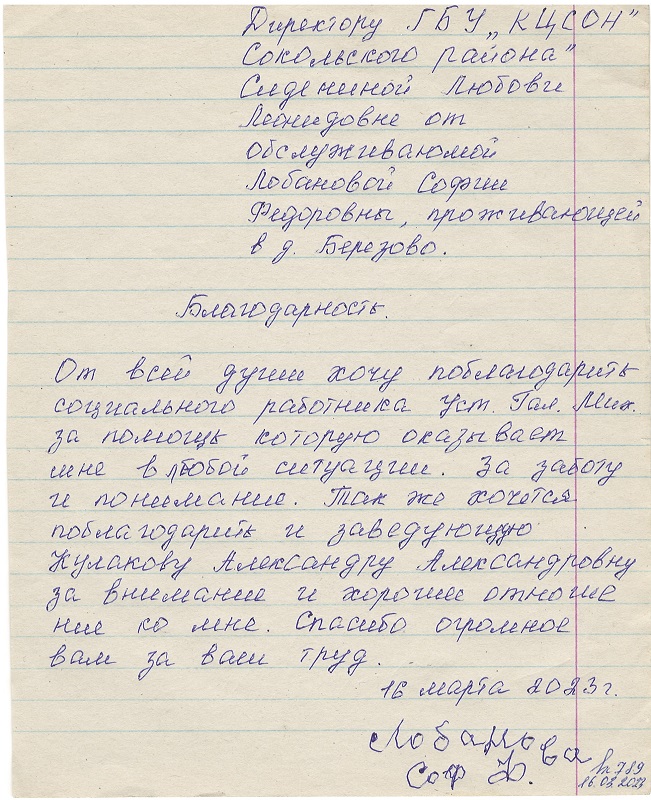 Директору ГБУ „КЦСОН"
Сокольского района"
Сидениной Любови
Леонидовне от
обслуживаюмой
Лобановой Софии
Федоровны, проживающей
в д. Березово.
Благодарность.
От всей души хочу поблагодарить
социального работника Уст. Гал. Мих.
за помощь которую оказывает
мне в любой ситуации. За заботу
и понимание. Так же хочется
поблагодарить и заведующую
Кулакову Александру Александровну
за внимание и хорошее отноше
ние ко мне. Спасибо огромное
вам за ваш труд.
16 марта 2023г.
Лобанова
Соф Ф.
Вх 789
16.03.2023